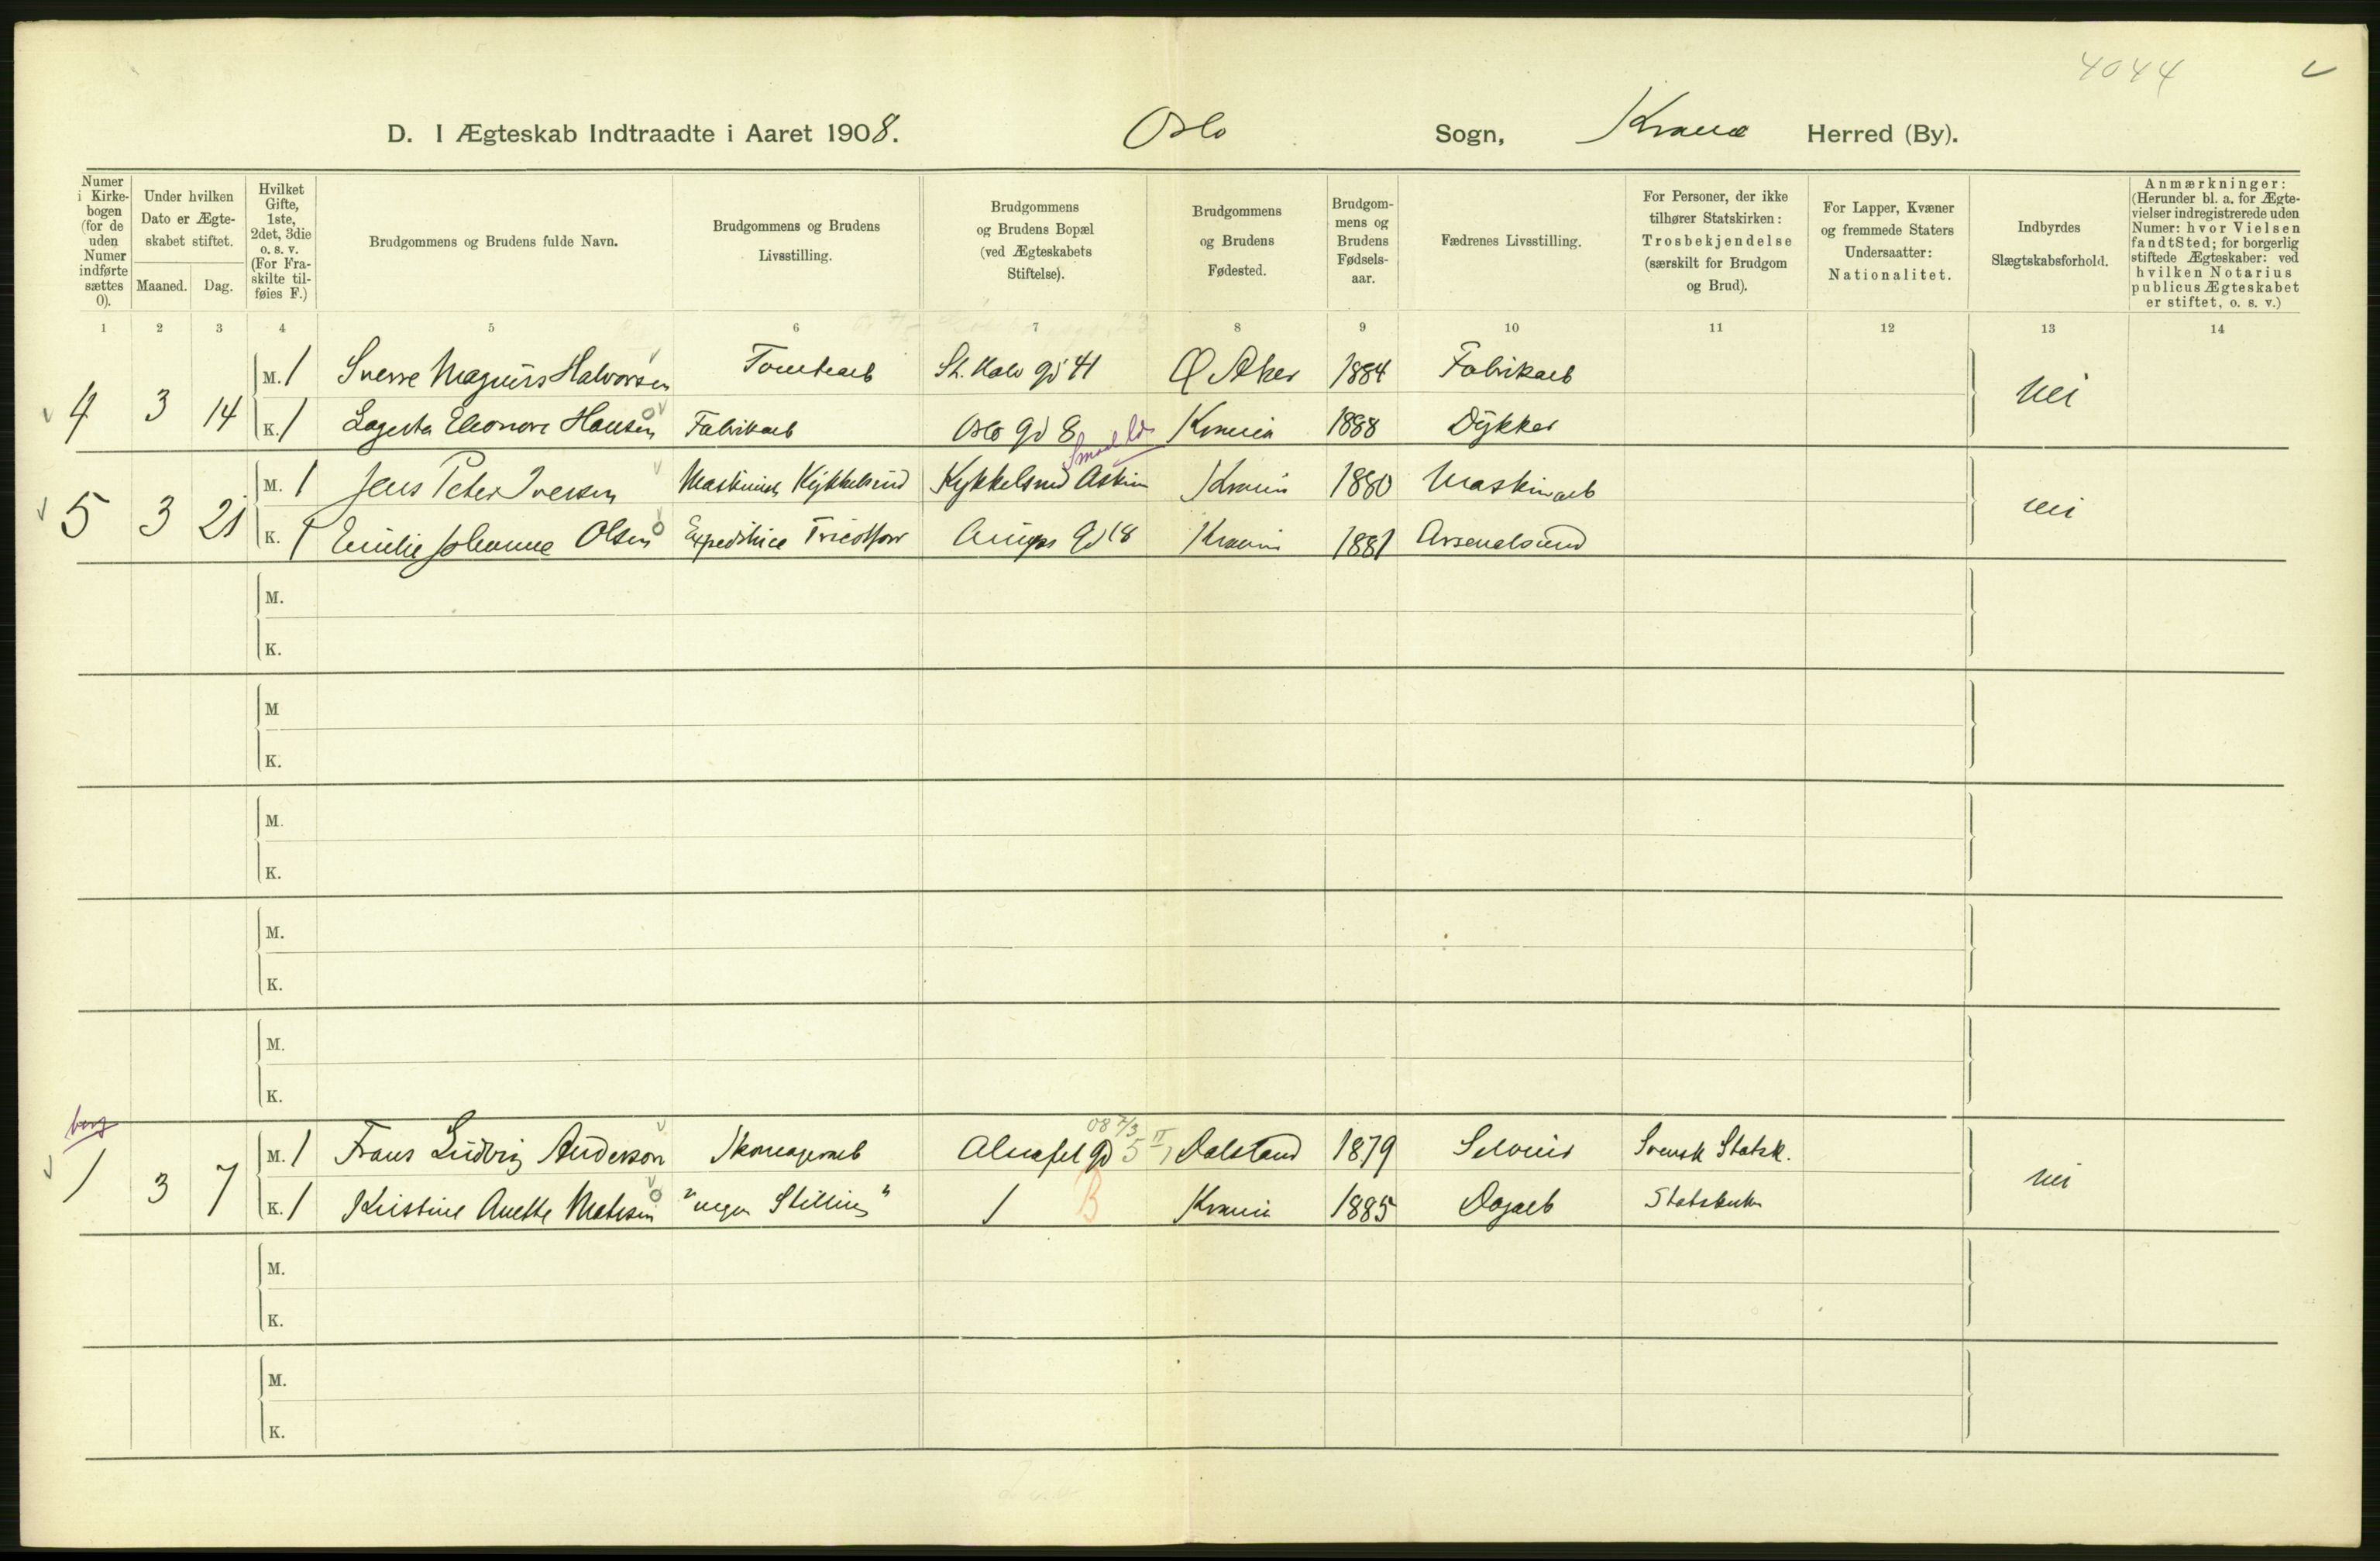 4044
D. I Ægteskab Indtraadte i Aaret 1908. Oslo Sogn, Krania Herred (By).
Numer i Kirkebogen (for de uden Numer indførte sættes 0).
Under hvilken Dato er Ægteskabet stiftet.
Maaned. Dag.
Hvilket Gifte, 1ste, 2det, 3die o. s. v. (For Fraskilte tilføies F.)
Brudgommens og Brudens fulde Navn.
Brudgommens og Brudens Livsstilling.
Brudgommens og Brudens Bopæl (ved Ægteskabets Stiftelse).
Brudgommens og Brudens Fødested.
Brudgommens og Brudens Fødselsaar.
Fædrenes Livsstilling.
For Personer, der ikke tilhører Statskirken: Trosbekjendelse (særskilt for Brudgom og Brud).
For Lapper, Kvæner og fremmede Staters Undersaatter: Nationalitet.
Indbyrdes Slægtskabsforhold.
Anmærkninger: (Herunder bl. a. for Ægtevielser indregistrerede uden Numer: hvor Vielsen fandt Sted; for borgerlig stiftede Ægteskaber: ved hvilken Notarius publicus Ægteskabet er stiftet, o. s. v.)
1 2 3 4 5 6 7 8 9 10 11 12 13 14
4 3 14 M. 1 Sverre Magnus Halvorsen Tomtearb St. Halv gd 41 Ø Aker 1884 Fabrikarb nei
K. 1 Lagerta Eleonore Hansen Fabrikarb Oslo gd 8 Krania 1888 Dykker
5 3 21 M. 1 Jens Peter Iversen Maskinist Kykkelsrud Kykkelsrud Askim Smaal Krania 1880 Maskinarb nei
K. 1 Emilie Johanne Olsen Expeditrice Tricotforr gd 18 Krania 1881
M.
K.
M
K.
M.
K.
M.
K.
M.
K.
borg
1 3 7 M. 1 Frans Ludvig Anderson Skomagerarb Alnafet gd 5 II 08 7/3 Dalsland 1879 Svensk Statsk. nei
K. 1 Kristine Anette Madsen "ingen Stilling" / B Krania 1885 Dagarb Statskirken
M.
K.
M.
K.